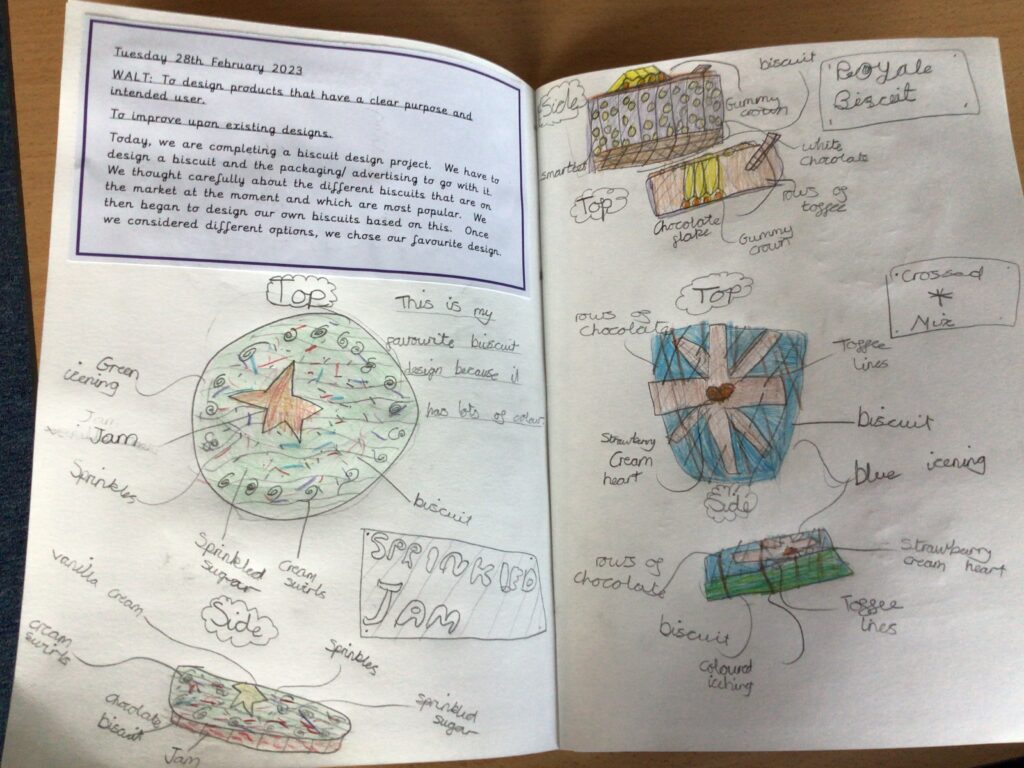 Tuesday 28th February 2023
WALT: To design products that have a clear purpose and
intended user.
To improve upon existing designs.
Today, we are completing a biscuit design project. We have to
design a biscuit and the packaging/ advertising to go with it.
We thought carefully about the different biscuits that are on
the market at the moment and which are most popular. We
then began to design our own biscuits based on this. Once
we considered different options, we chose our favourite design.
Top
This is my
favourite biscuit
design because it
has lots of colour.
Green
icening
Jam
Sprinkles
Sprinkled
sugar
Cream
swirls
biscuit
SPRINKlED
JAM
Side
vanilla cream
cream
swirls
Sprinkles
Sprinkled
sugar
chocolate
biscuit
Jam
Side
biscuit
Royale
Biscuit
Gummy
crown
white
chocolate
smarties
Top
rows of
toffee
Chocolate
flake
Gummy
crown
Top
Crossed
Mix
rows of
Toffee
lines
biscuit
Strawberry
Cream
heart
blue icening
Side
rows of
chocolate
Strawberry
cream heart
Toffee
lines
biscuit
Coloured